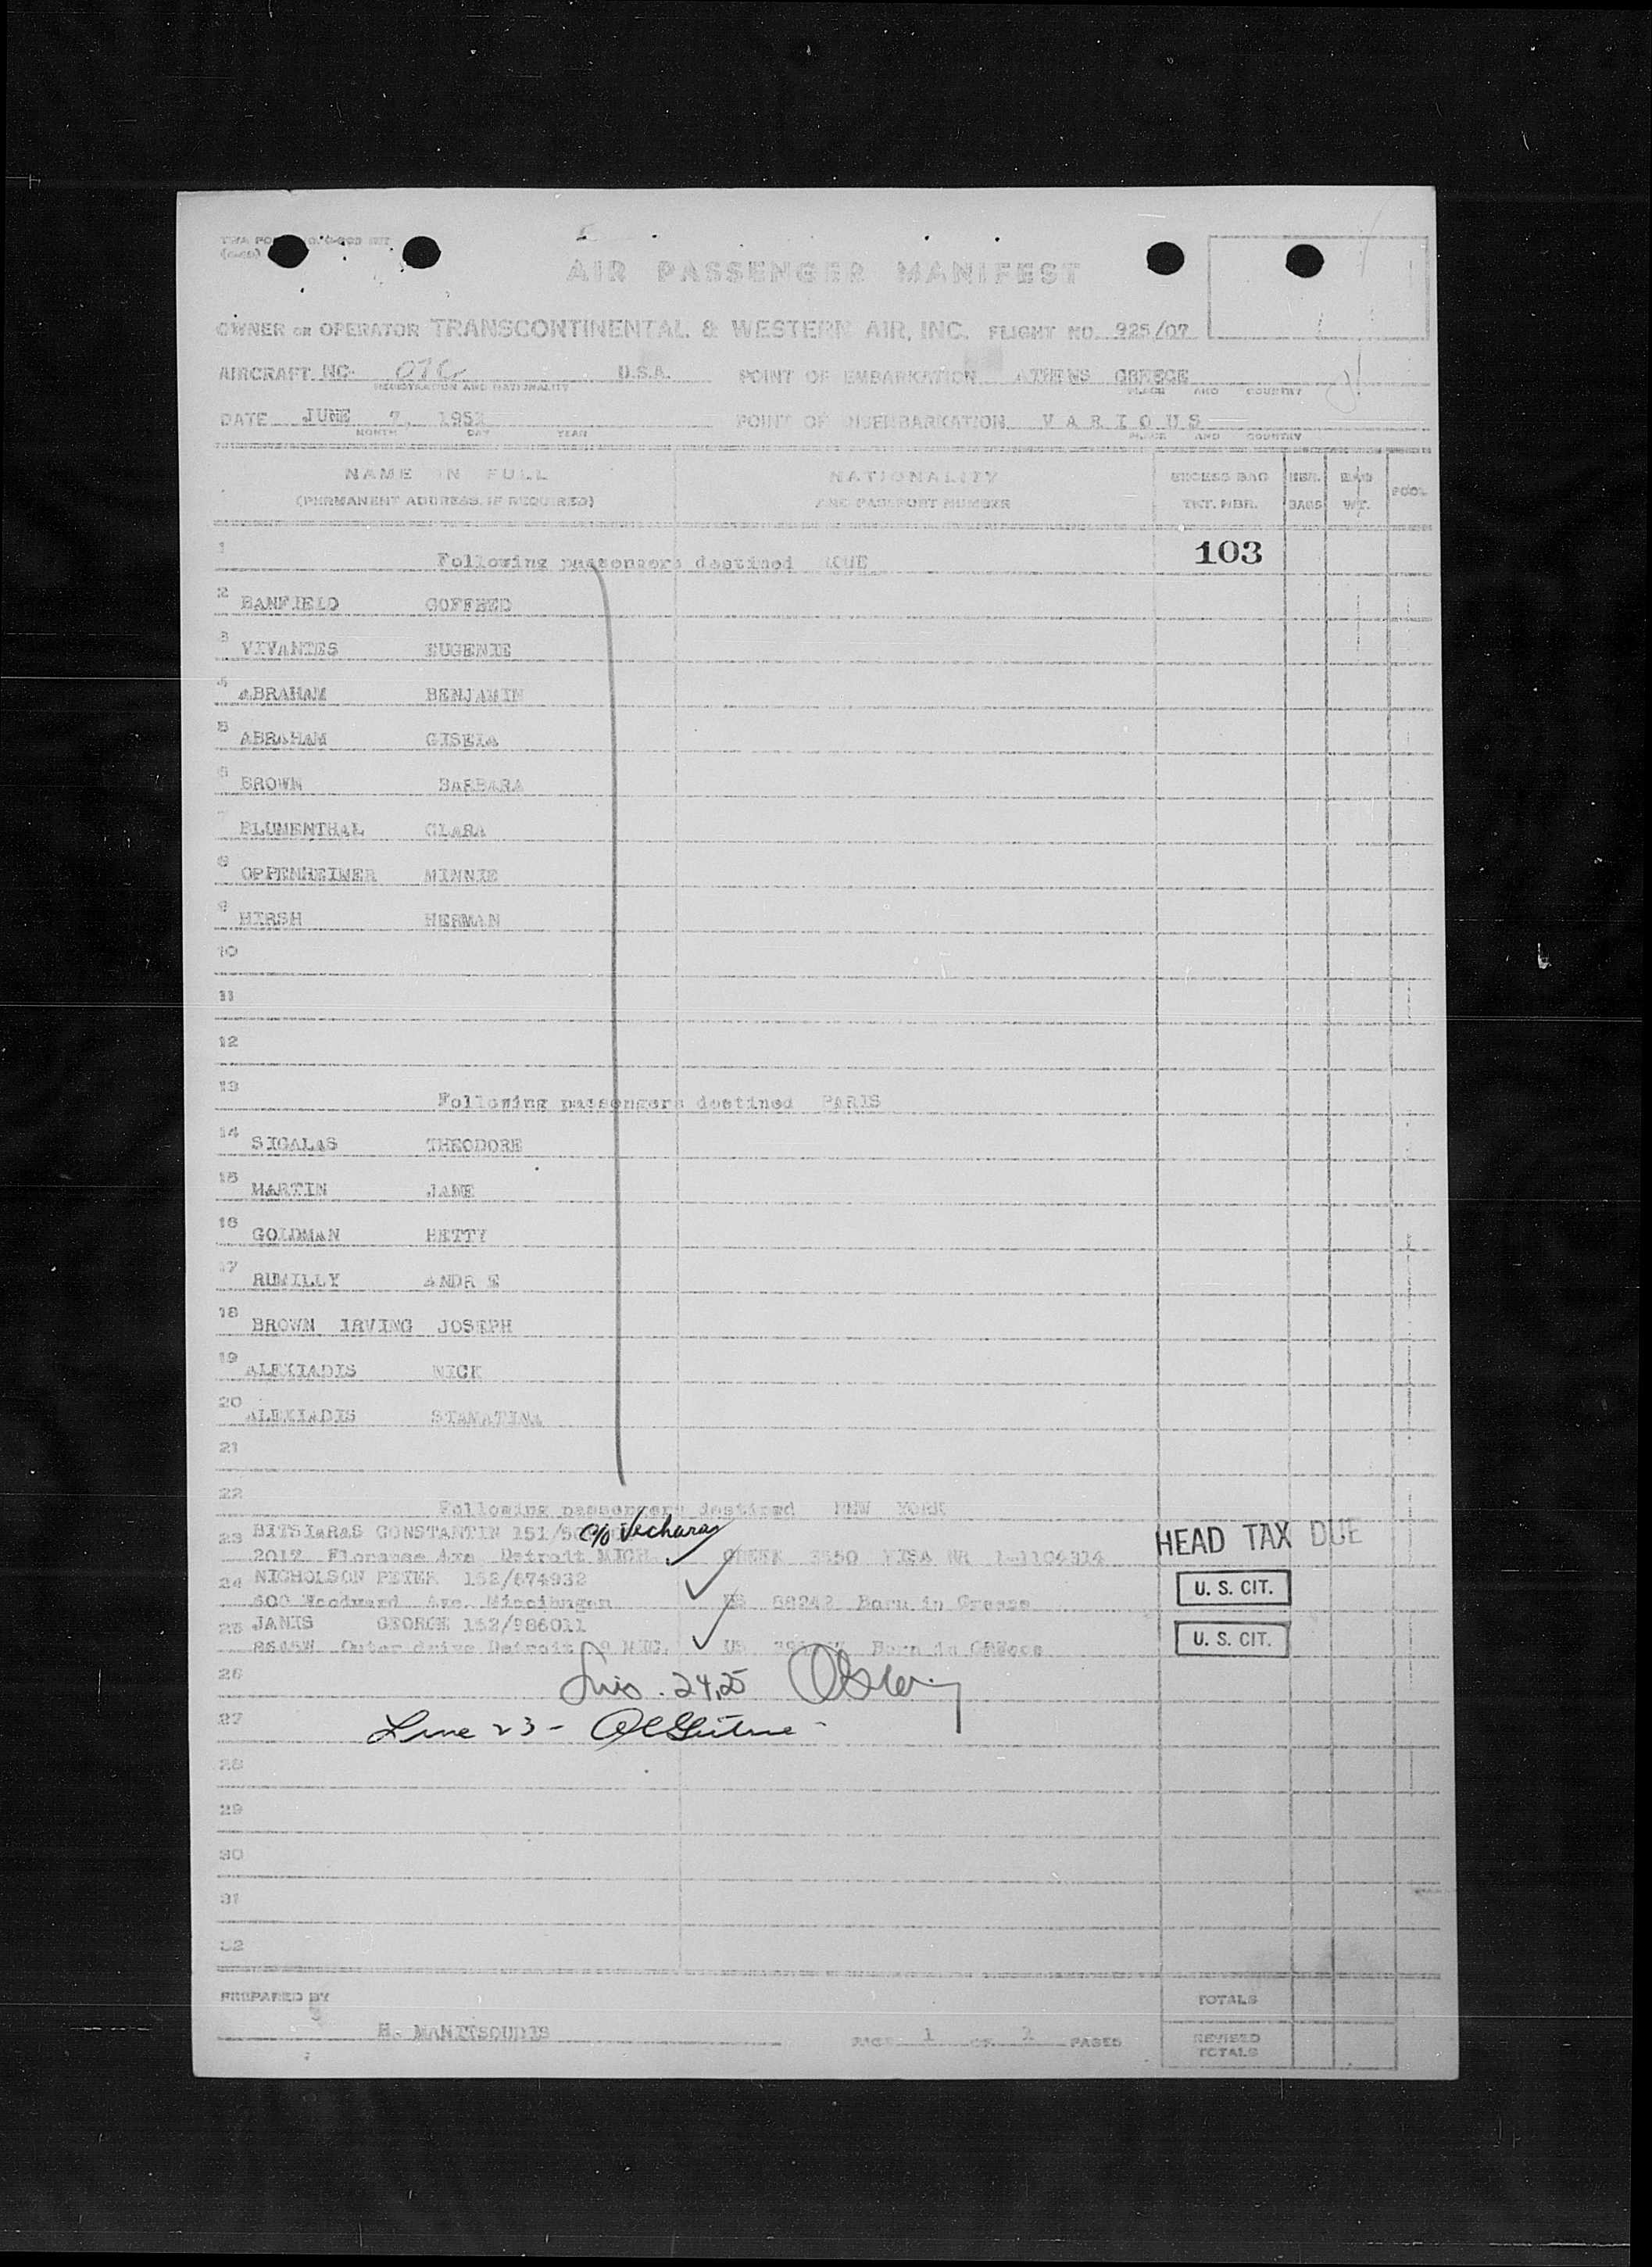 AIR PASSENGER MANIFEST
OWNER OR OPERATOR TRANSCONTINENTAL & WESTERN AIR, INC. FLIGHT NO. 925/07
AIRCRAFT NC U.S.A. POINT OF EMBARKATION ATHEWS GREECE
REGISTRATION AND NATIONALITY PLACE AND COUNTRY
DATE JUNE 7, 195 POINT OF DISEMBARKATION V A R I O U S
MONTH DAY YEAR PLACE AND COUNTRY
NAME IN FULL NATIONALITY EXCESS BAG NBR. BAG POOL
(PERMANENT ADDRESS, IF REQUIRED) AND PASSPORT NUMBER TKT. NBR. BAGS WT.
1 Following passengers destined 103
2 BANFIELD GOFFRED
3 VIVANTES EUGENIE
4 ABRAHAM BENJAMIN
5 ABRAHAM GISELA
6 BROWN BARBARA
7 BLUMENTHAL CLARA
8 OPPENHEIMER MINNIE
9 HIRSH HERMAN
10
11
12
13 Following passengers destined PARIS
14 SIGALAS THEODORE
15 MARTIN JANE
16 GOLDMAN HETTY
17 RUMILLY ANDR E
18 BROWN IRVING JOSEPH
19 ALEXIADIS NICK
20 ALEXIADIS STAMATINA
21
22 Following passengers destined NEW YORK
23 BITSIARAS CONSTANTIN c/o Vecharas HEAD TAX DUE
2017 Detroit MICH. GREEK 3550 VISA NR
24 NICHOLSON PETER 152/674932 U. S. CIT.
600 Woodward Ave. US Born in Greece
25 JANIS GEORGE 152/986011 U. S. CIT.
Outer drive Detroit US Born in Greece
26 24,25
27 Line 23 -
28
29
30
31
32
PREPARED BY TOTALS
H. MANITSOUDIS PAGE 1 OF PAGES REVISED
TOTALS